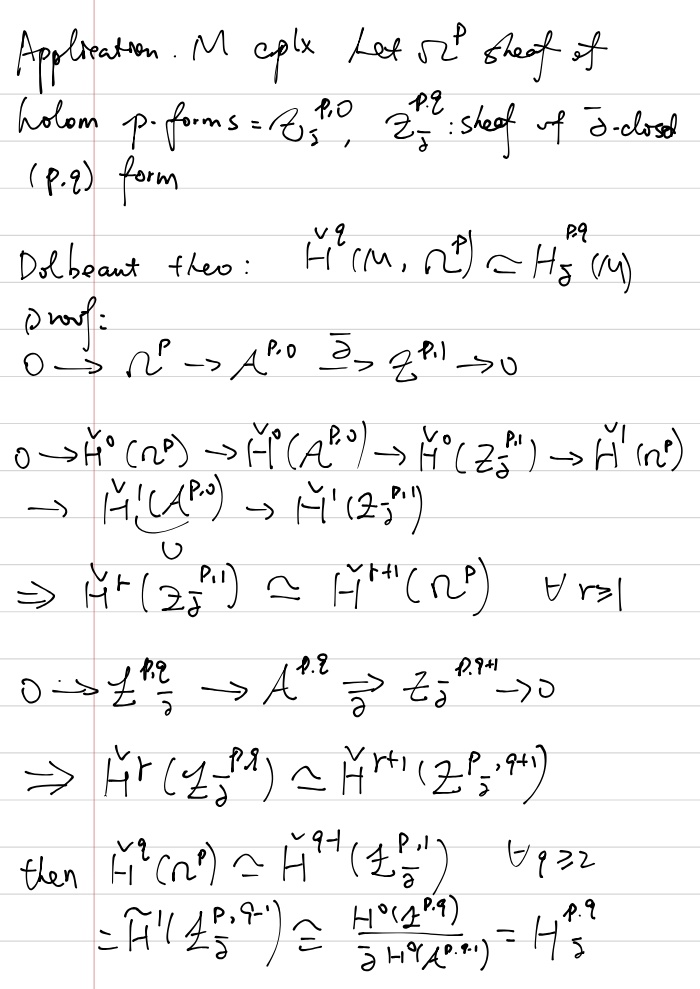 Application. M cplx Let Ω^p sheaf of
holom p-forms = Z_∂̄^{p,0}, Z_∂̄^{p,q} : sheaf of ∂̄-closed
(p.q) form
Dolbeant theo: Ȟ^q (M, Ω^p) ≃ H_∂̄^{p,q} (M)
proof:
0 → Ω^p → A^{p,0} →^∂̄ Z^{p,1} → 0
0 → Ȟ^0 (Ω^p) → Ȟ^0 (A^{p,0}) → Ȟ^0 (Z_∂̄^{p,1}) → Ȟ^1 (Ω^p)
→ Ȟ^1 (A^{p,0}) → Ȟ^1 (Z_∂̄^{p,1})
0
⇒ Ȟ^r (Z_∂̄^{p,1}) ≃ Ȟ^{r+1} (Ω^p) ∀ r≥1
0 → Z_∂̄^{p,q} → A^{p,q} ⇒_∂̄ Z_∂̄^{p,q+1} → 0
⇒ Ȟ^r (Z_∂̄^{p,q}) ≃ Ȟ^{r+1} (Z_∂̄^{p,q+1})
then Ȟ^q (Ω^p) ≃ Ȟ^{q-1} (Z_∂̄^{p,1}) ∀ q≥2
= H̃^1 (Z_∂̄^{p,q-1}) ≅ H^0(Z^{p,q}) / ∂̄ H^0(A^{p,q-1}) = H_∂̄^{p,q}